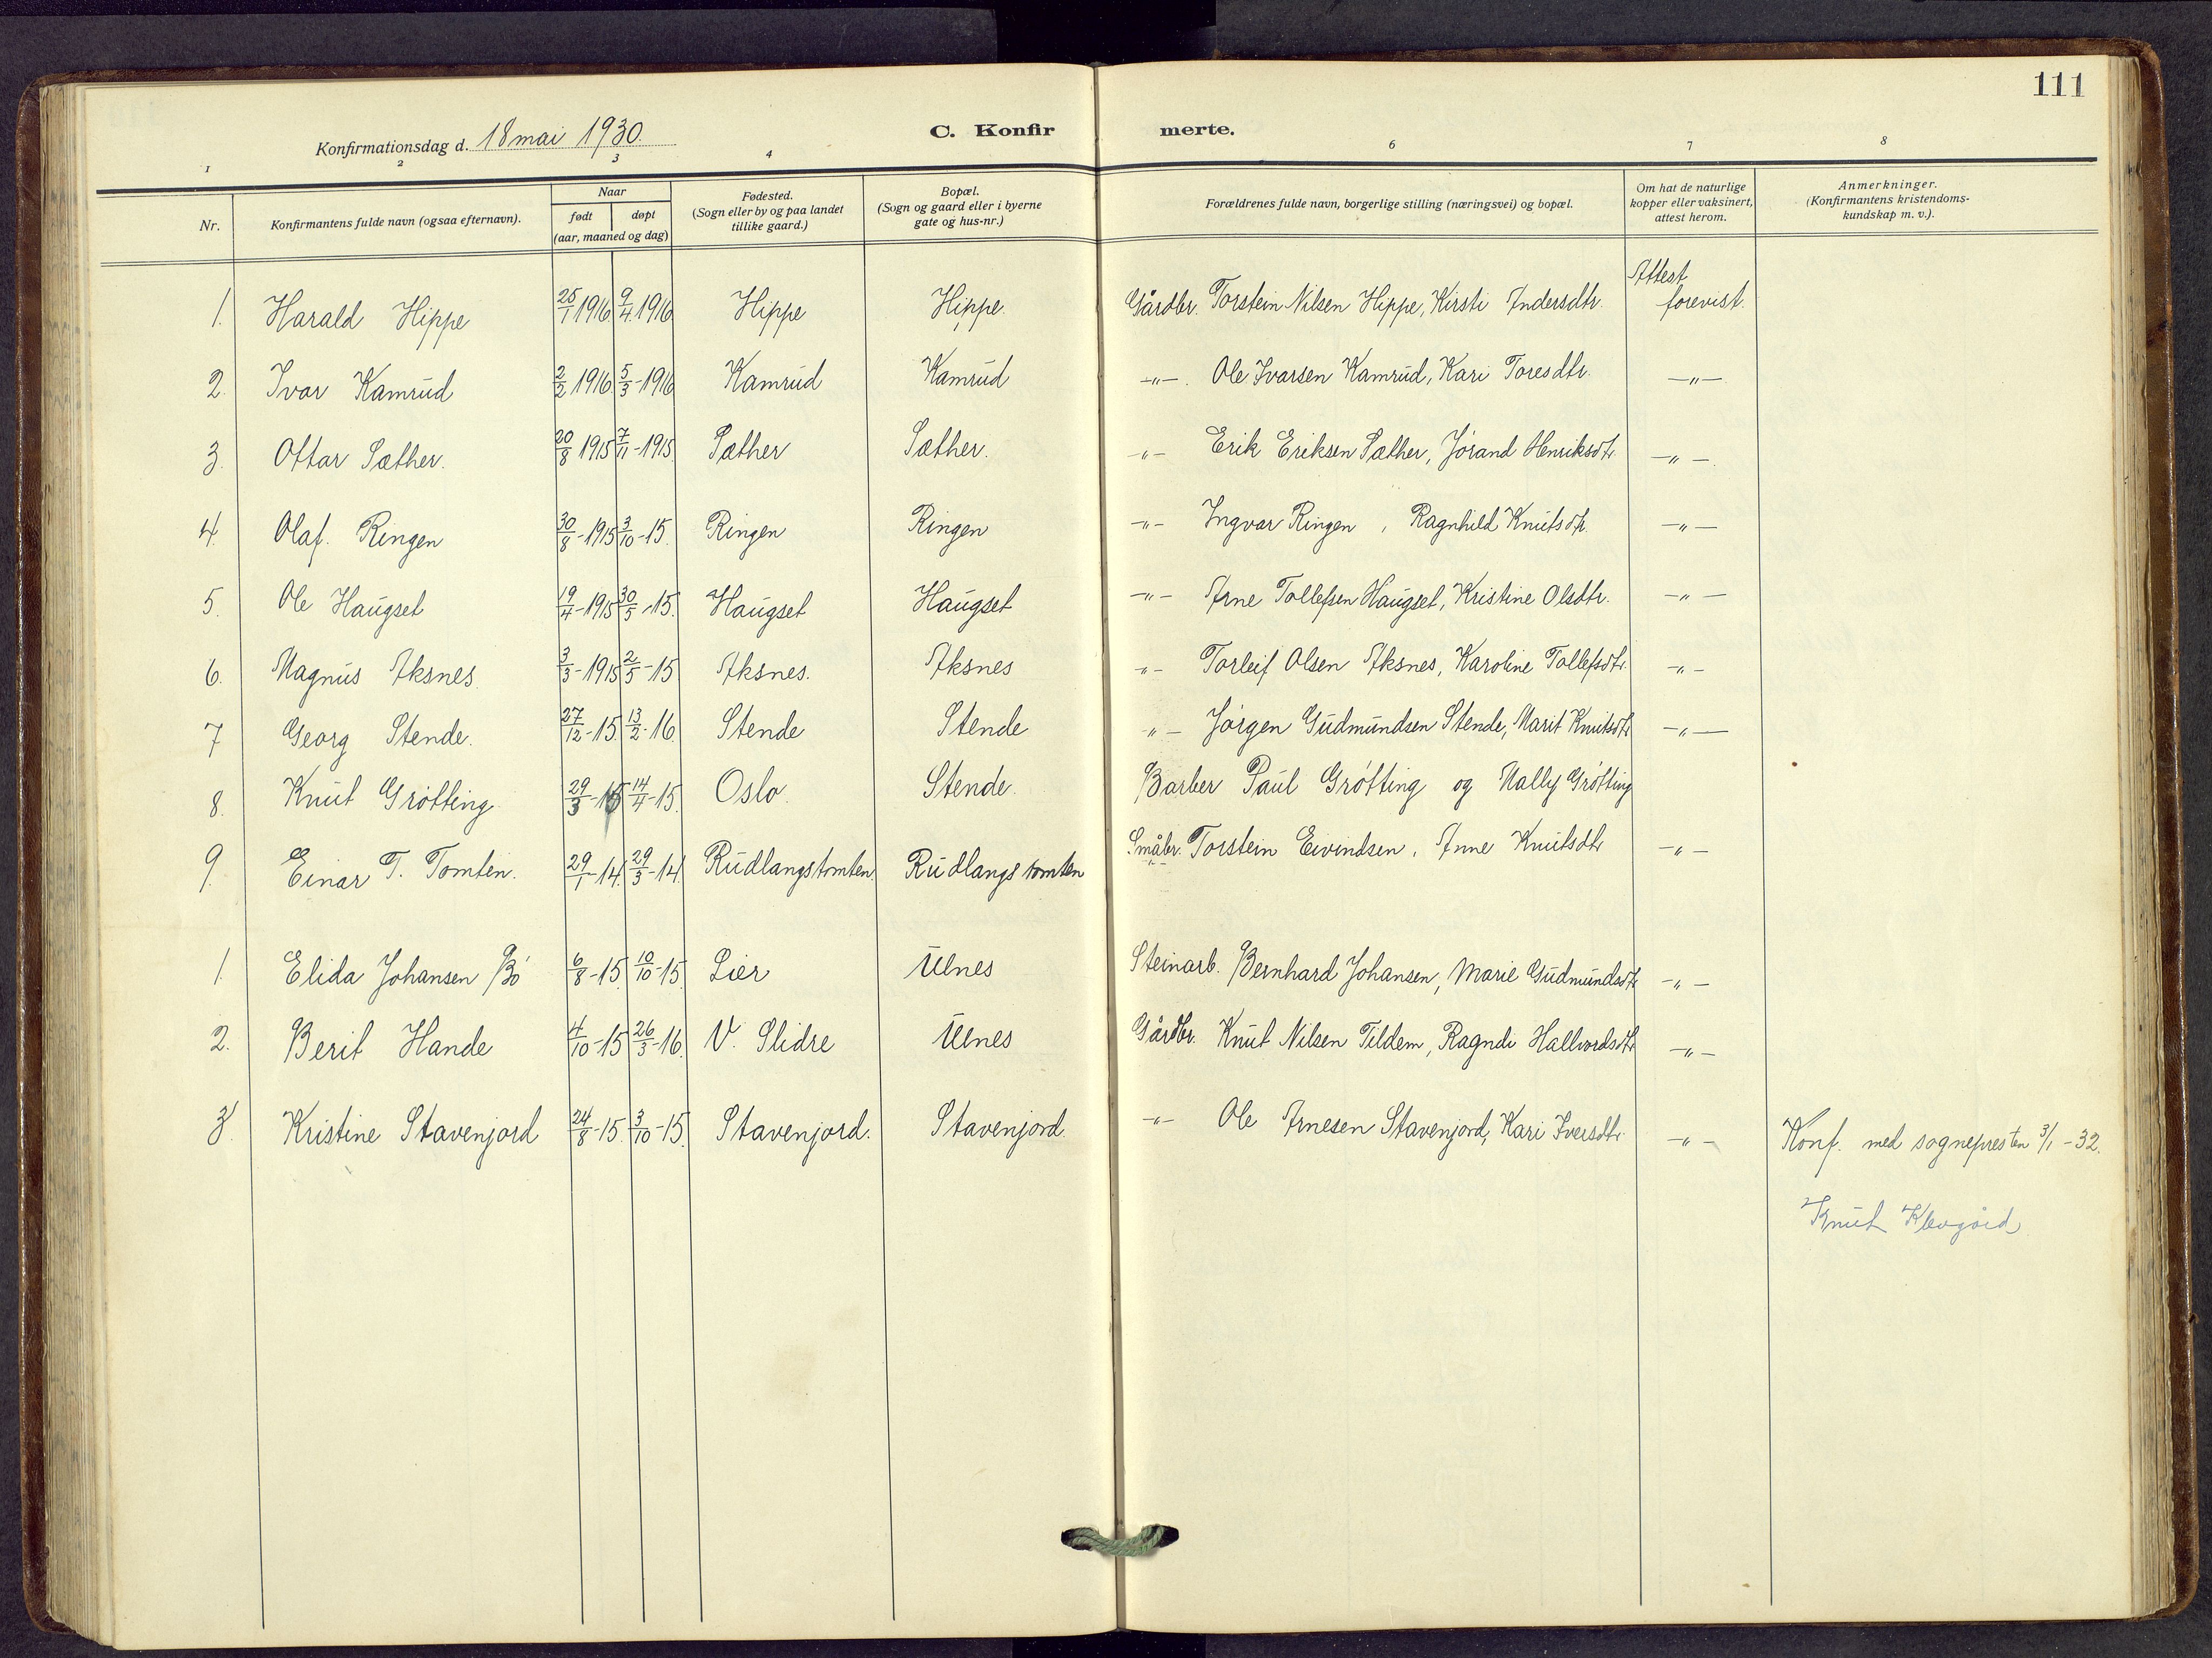 111
Konfirmationsdag d. 18 mai 1930.
C. Konfir merte.
1 2 3 4 6 7 8
Nr. Konfirmantens fulde navn (ogsaa efternavn). Naar født døpt (aar, maaned og dag) Fødested. (Sogn eller by og paa landet tillike gaard.) Bopæl. (Sogn og gaard eller i byerne gate og hus-nr.) Forældrenes fulde navn, borgerlige stilling (næringsvei) og bopæl. Om hat de naturlige kopper eller vaksinert, attest herom. Anmerkninger. (Konfirmantens kristendomskundskap m. v.).
1. Harald Hippe 25/1 1916 9/4 1916 Hippe Hippe. Gårdbr. Torstein Nilsen Hippe, Kirsti Andersdtr. Attest forevist.
2. Ivar Kamrud 2/2 1916 5/3-1916 Kamrud Kamrud -"-. Ole Ivarsen Kamrud, Kari Toresdtr. -"-
3. Ottar Sæther. 20/8 1915 7/11-1915 Sæther Sæther. -"- Erik Eriksen Sæther, Jørand Henriksdtr. -"-.
4. Olaf. Ringen 30/8-1915 3/10-15. Ringen Ringen -"- Ingvar Ringen, Ragnhild Knutsdtr. -"-
5. Ole Haugset 19/4-1915 30/5-15. Haugset Haugset -"- Arne Tollefsen Haugset, Kristine Olsdtr. -"-
6. Magnus Aksnes. 3/3-1915 2/5-15 Aksnes. Aksnes -"- Torleif Olsen Aksnes, Karoline Tollefsdtr. -"-
7 Georg Stende. 27/12-15. 13/2-16. Stende Stende -"- Jørgen Gudmundsen Stende, Marit Knutsdtr -"-
8. Knut Grøtting 29/3-15 14/4-15. Oslo. Stende. Barber Paul Grøtting og Nally Grøtting
9. Einar T. Tomten. 29/1-14. 29/3-14. Rudlangstomten. Rudlangstomten Småbr. Torstein Eivindsen. Anne Knutsdtr -"-
1. Elida Johansen Bø 6/8-15. 10/10-15. Lier Ulnes Steinarb. Bernhard Johansen, Marie Gudmundsdtr -"-
2. Berit Hande 4/10-15 26/3-16. V. Slidre Ulnes Gårdbr. Knut Nilsen Tildem, Ragndi Hallvordsdtr -"-
3. Kristine Stavenjord 24/8-15. 3/10-15. Stavenjord. Stavenjord. -"- Ole Arnesen Stavenjord, Kari Iversdtr. -"- Konf. med sognepresten 3/1-32.
Knut Klevgård